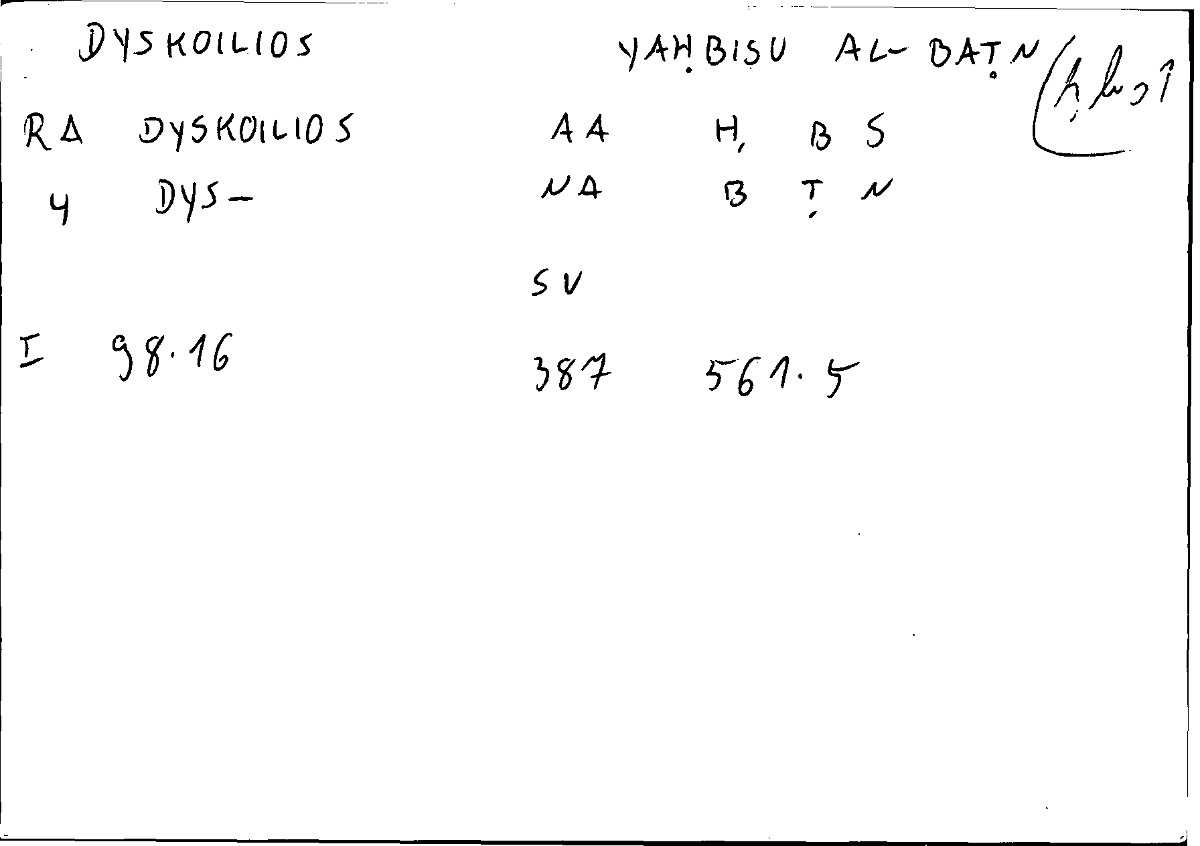 DYSKOILIOS YAḤBISU AL- BAṬN
RA DYSKOILIOS AA Ḥ B S
4 DYS- NA B Ṭ N
SV
I 98.16 387 561.5